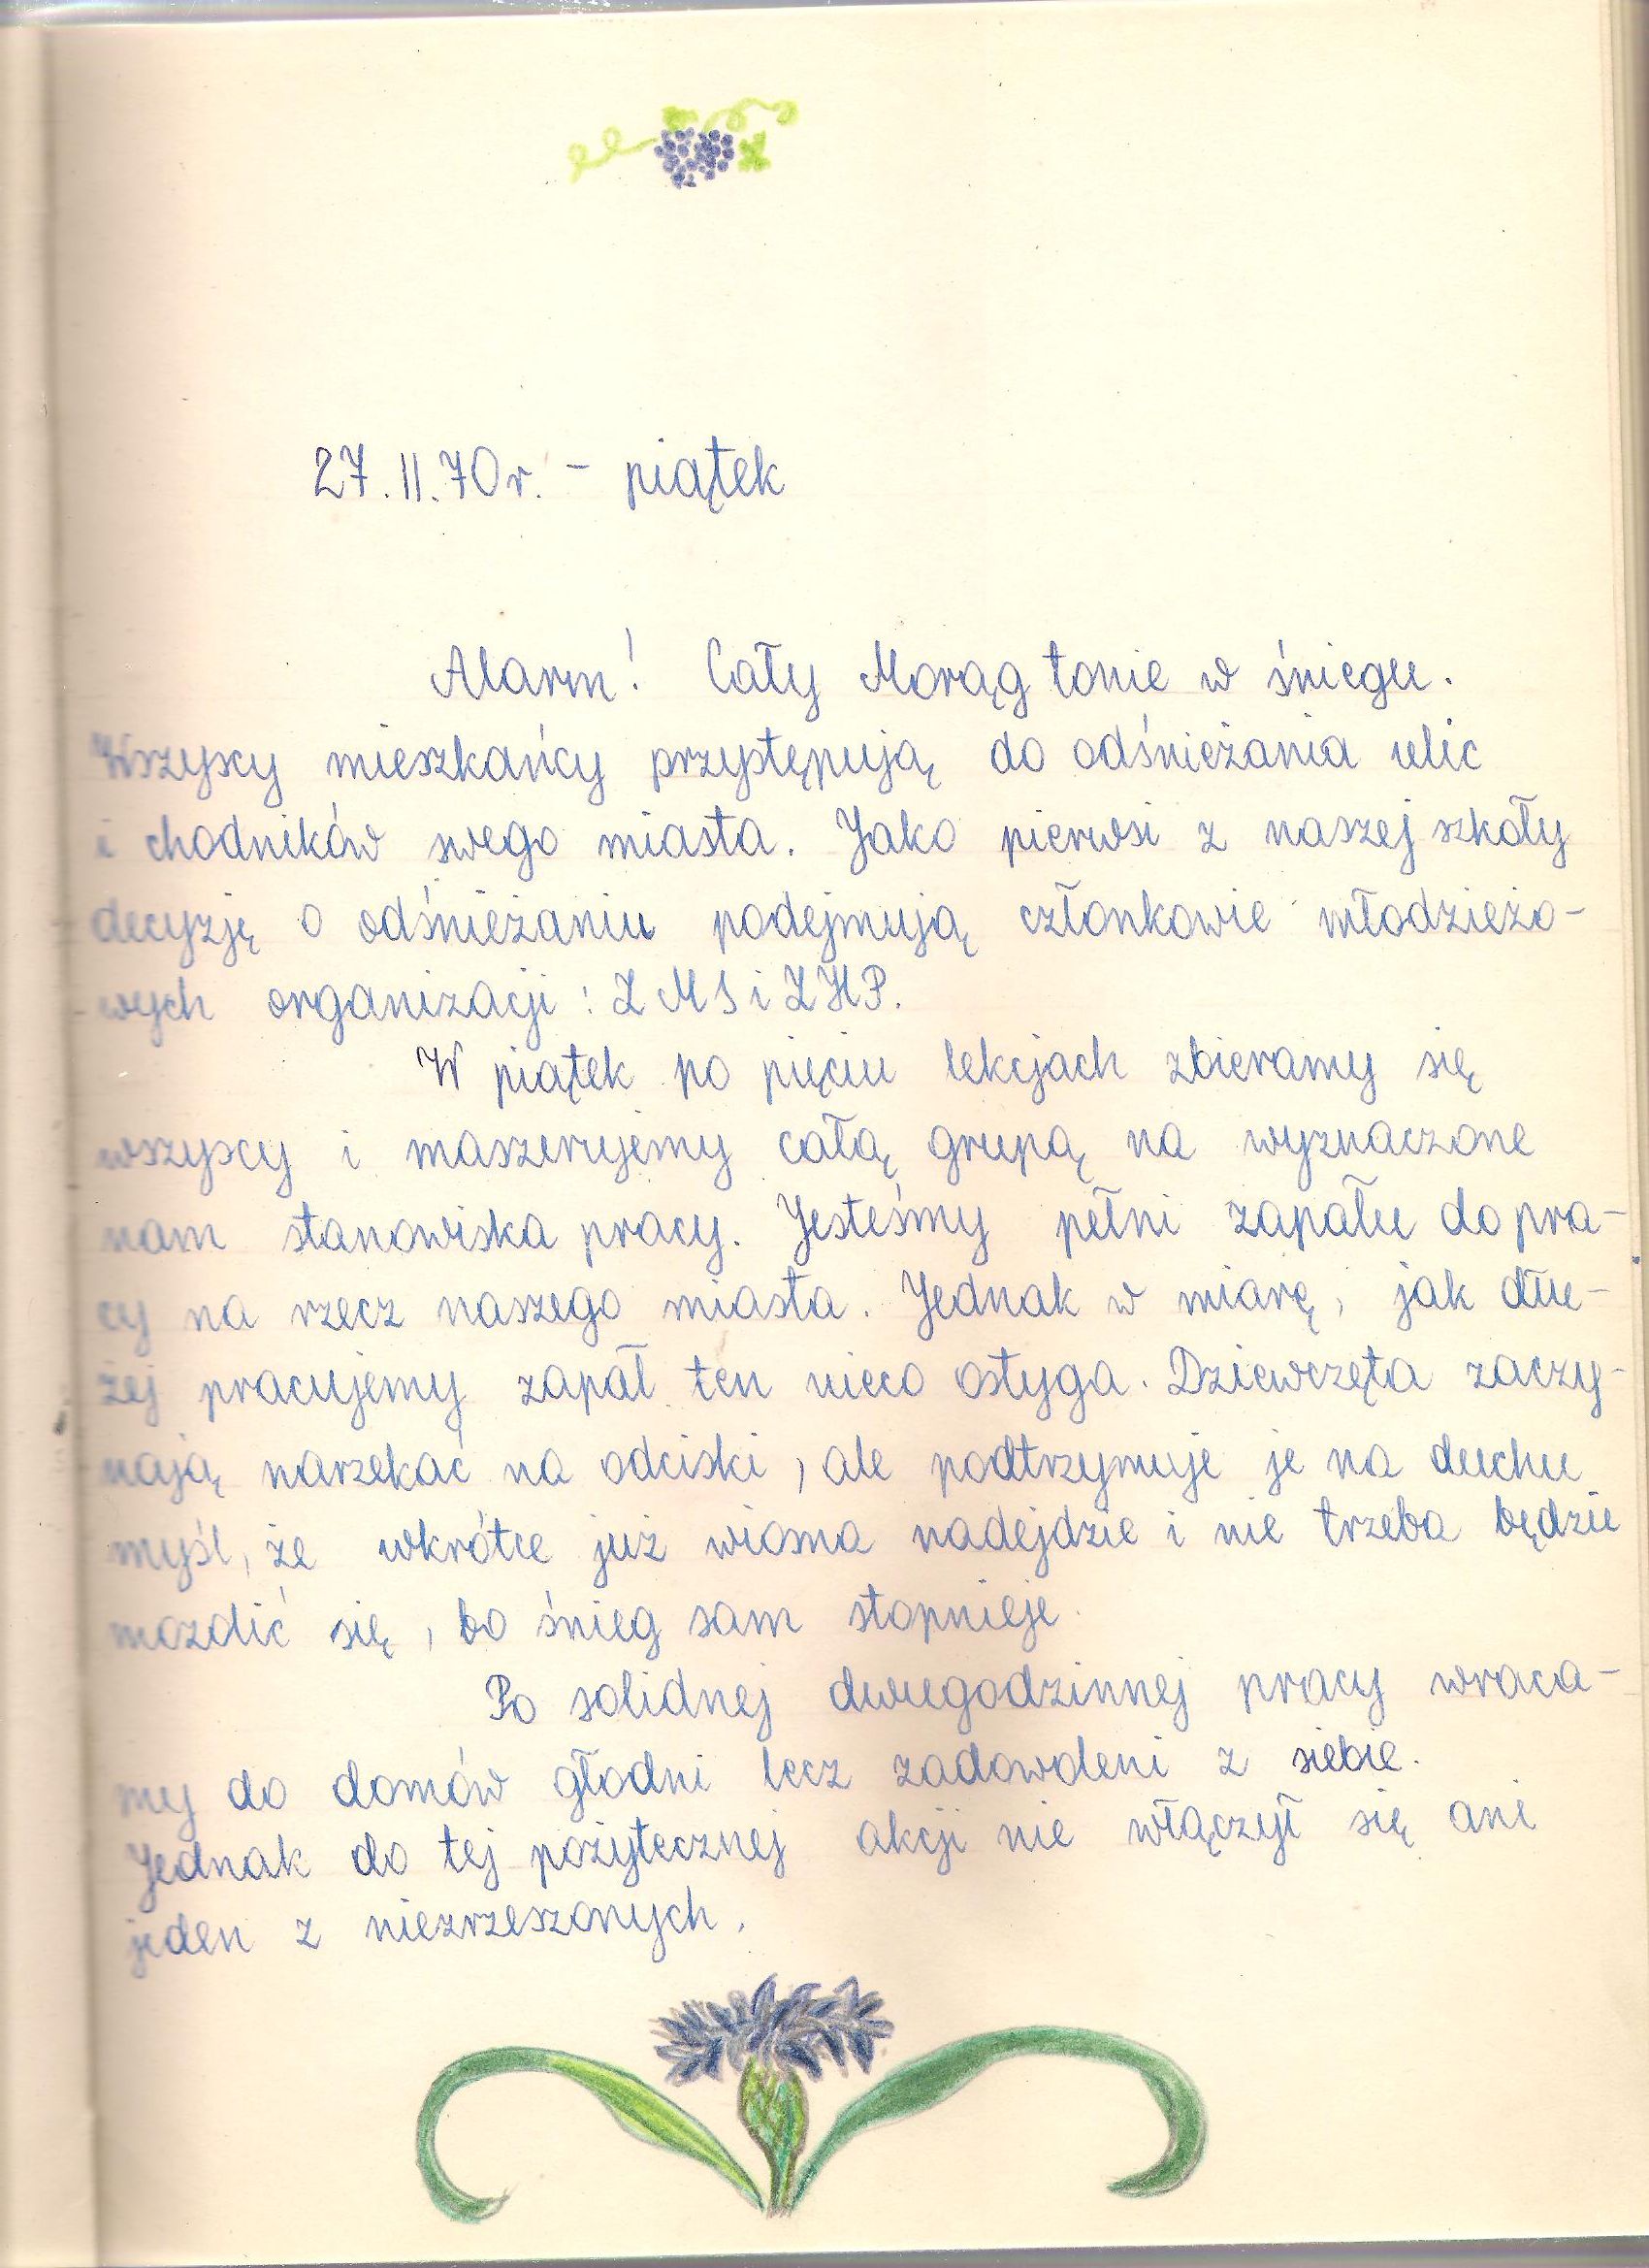 27.II.70r. - piątek
Alarm! Cały Morąg tonie w śniegu.
Wszyscy mieszkańcy przystępują do odśnieżania ulic
i chodników swego miasta. Jako pierwsi z naszej szkoły
decyzję o odśnieżaniu podejmują członkowie młodzieżo-
wych organizacji: ZMS i ZHP.
W piątek po pięciu lekcjach zbieramy się
wszyscy i maszerujemy całą grupą na wyznaczone
nam stanowiska pracy. Jesteśmy pełni zapału do pra-
cy na rzecz naszego miasta. Jednak w miarę, jak dłu-
żej pracujemy zapał ten nieco ostyga. Dziewczęta zaczy-
nają narzekać na odciski, ale podtrzymuje je na duchu
myśl, że wkrótce już wiosna nadejdzie i nie trzeba będzie
mozolić się, bo śnieg sam stopnieje.
Po solidnej dwugodzinnej pracy wraca-
my do domów głodni lecz zadowoleni z siebie.
Jednak do tej pożytecznej akcji nie włączył się ani
jeden z niezrzeszonych.